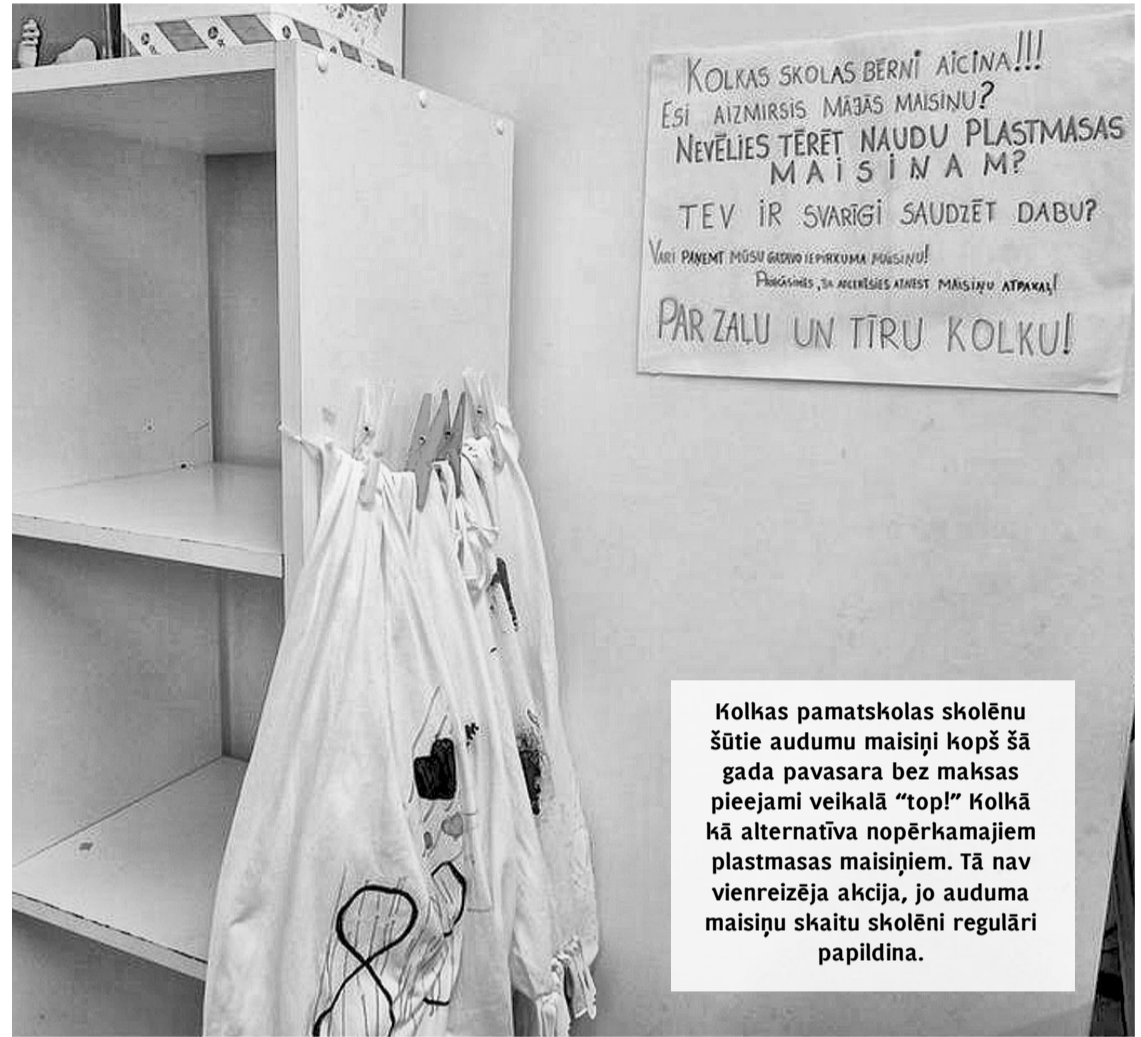 KOLKAS SKOLAS BĒRNI AICINA!!!
ESI AIZMIRSIS MĀJĀS MAISIŅU?
NEVĒLIES TĒRĒT NAUDU PLASTMASAS
MAISIŅAM?
TEV IR SVARĪGI SAUDZĒT DABU?
VARI PAŅEMT MŪSU GATAVO IEPIRKUMA MAISIŅU!
PRIECĀSIMIES, JA ATCERĒSIES ATNEST MAISIŅU ATPAKAĻ!
PAR ZAĻU UN TĪRU KOLKU!
Kolkas pamatskolas skolēnu
šūtie audumu maisiņi kopš šā
gada pavasara bez maksas
pieejami veikalā “top!” Kolkā
kā alternatīva nopērkamajiem
plastmasas maisiņiem. Tā nav
vienreizēja akcija, jo auduma
maisiņu skaitu skolēni regulāri
papildina.